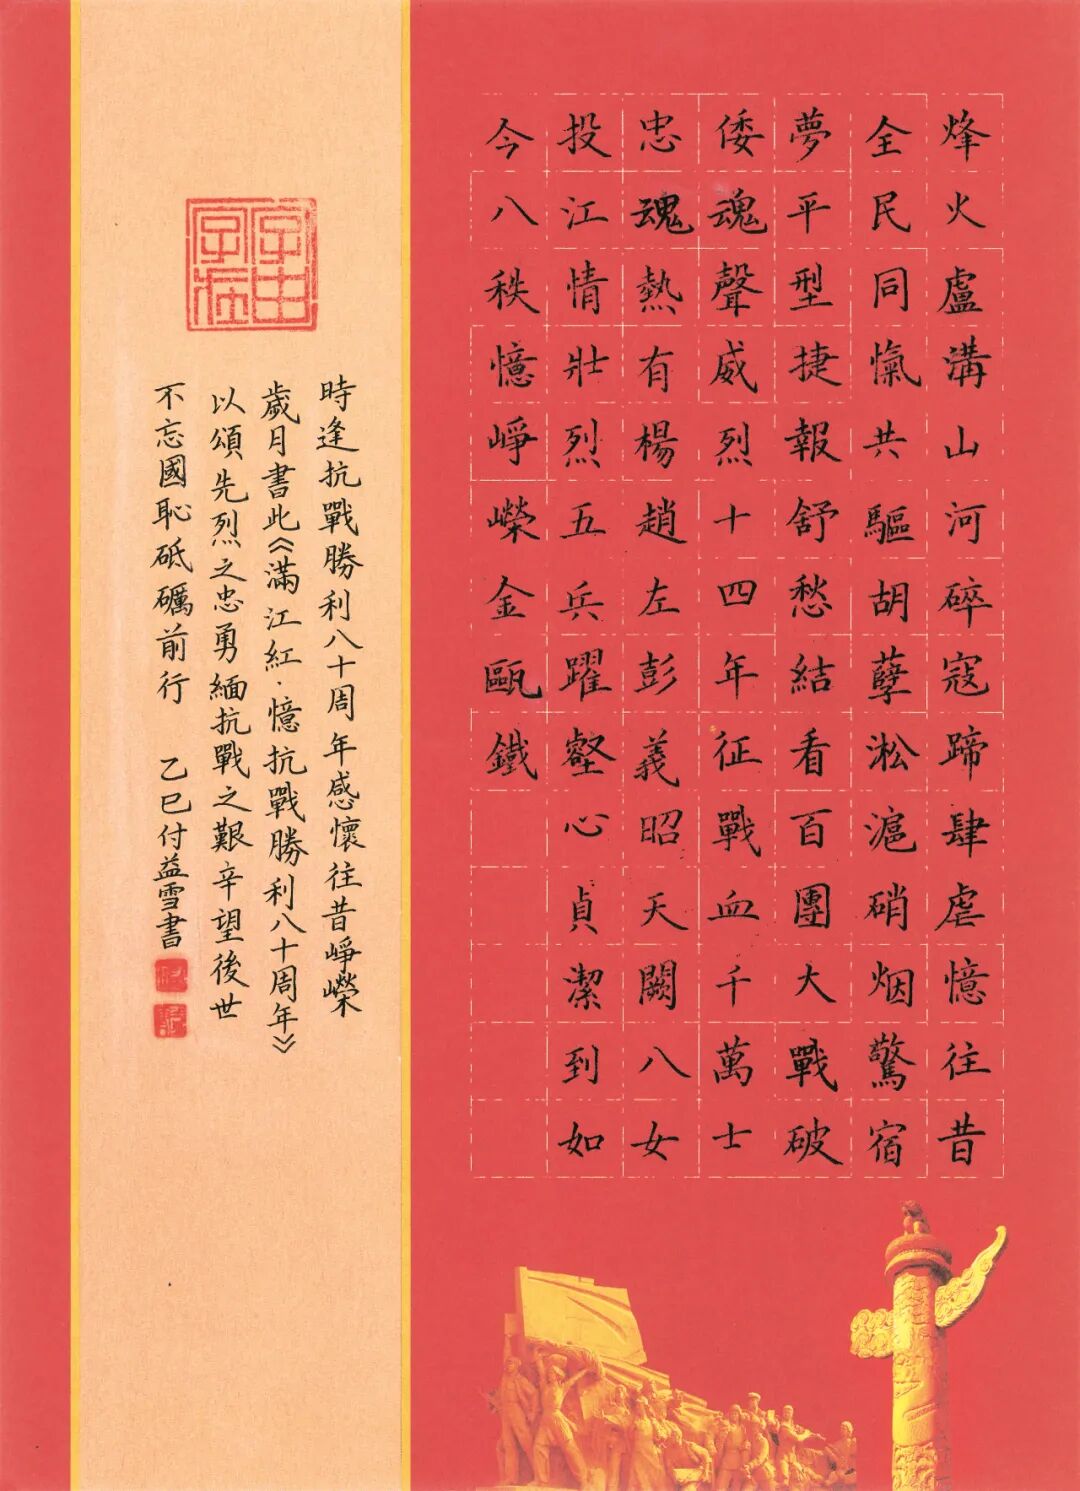 烽火盧溝山河碎寇蹄肆虐憶往昔
全民同愾共驅胡孽淞滬硝烟驚宿
夢平型捷報舒愁結看百團大戰破
倭魂聲威烈十四年征戰血千萬士
忠魂熱有楊趙左彭義昭天闕八女
投江情壯烈五兵躍壑心貞潔到如
今八秩憶崢嶸金甌鐵
時逢抗戰勝利八十周年感懷往昔崢嶸
歲月書此《滿江紅·憶抗戰勝利八十周年》
以頌先烈之忠勇緬抗戰之艱辛望後世
不忘國恥砥礪前行 乙巳付益雪書